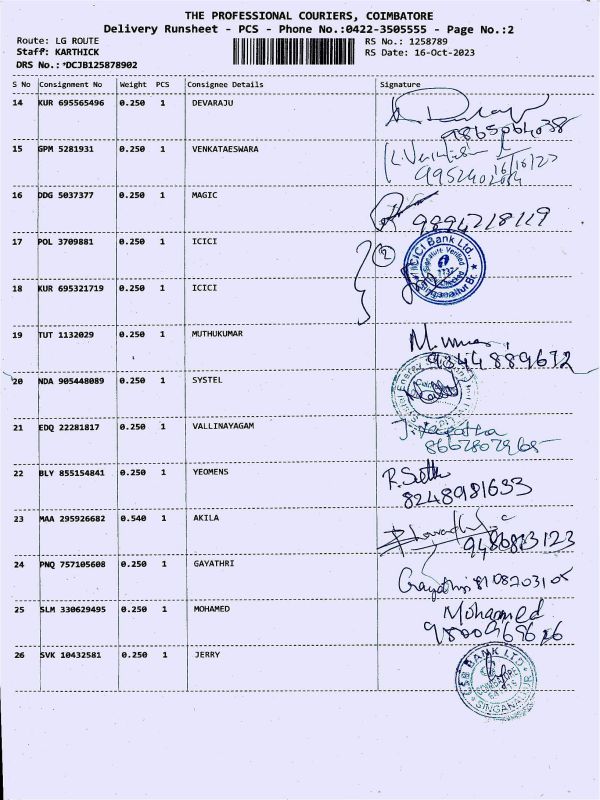 THE PROFESSIONAL COURIERS, COIMBATORE
Delivery Runsheet - PCS - Phone No.:0422-3505555 - Page No.:2
Route: LG ROUTE RS No.: 1258789
Staff: KARTHICK RS Date: 16-Oct-2023
DRS No.: *DCJB125878902
S No Consignment No Weight PCS Consignee Details Signature
14 KUR 695565496 0.250 1 DEVARAJU
9865064038
15 GPM 5281931 0.250 1 VENKATAESWARA
16/10/23
16 DDG 5037377 0.250 1 MAGIC
9894218119
17 POL 3709881 0.250 1 ICICI
2
ICICI Bank Ltd.,
Signature Verified
18 KUR 695321719 0.250 1 ICICI
19 TUT 1132029 0.250 1 MUTHUKUMAR
9344889672
20 NDA 905448089 0.250 1 SYSTEL
21 EDQ 22281817 0.250 1 VALLINAYAGAM
8667807968
22 BLY 855154841 0.250 1 YEOMENS
8248981633
23 MAA 295926682 0.540 1 AKILA
24 PNQ 757105608 0.250 1 GAYATHRI
Gayathri
25 SLM 330629495 0.250 1 MOHAMED
Mohamed
26 SVK 10432581 0.250 1 JERRY
BANK LTD